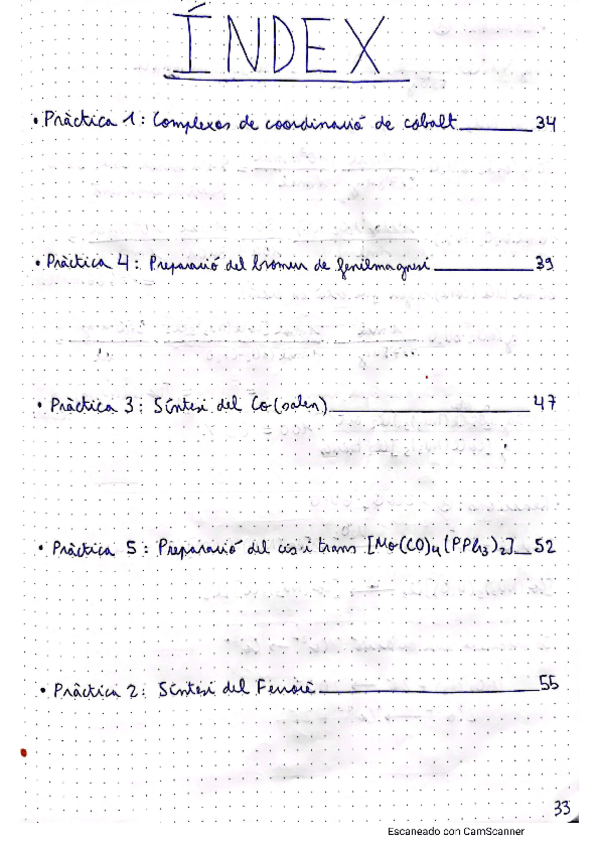 ÍNDEX
• Pràctica 1: Complexos de coordinació de cobalt 34
• Pràctica 4: Preparació del bromur de fenilmagnesi 39
• Pràctica 3: Síntesi del Co(salen) 47
• Pràctica 5: Preparació del cis i trans [Mo(CO)4(PPh3)2] 52
• Pràctica 2: Síntesi del Ferrocè 55
33
Escaneado con CamScanner